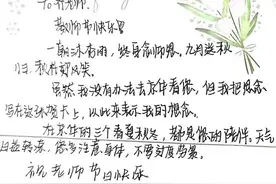 老师:
教师节快乐
一朝沐春雨,终身念师恩。九月送秋
归,秋叶却风笑。
虽然我没有办法去亲自看你,但我把想念
写在这张贺卡上,以此来表示我的想念。
在京作的三个春夏秋冬,都是您的陪伴。天气
日益转凉,您多注意身体,不要过度劳累。
祝老师节日快乐